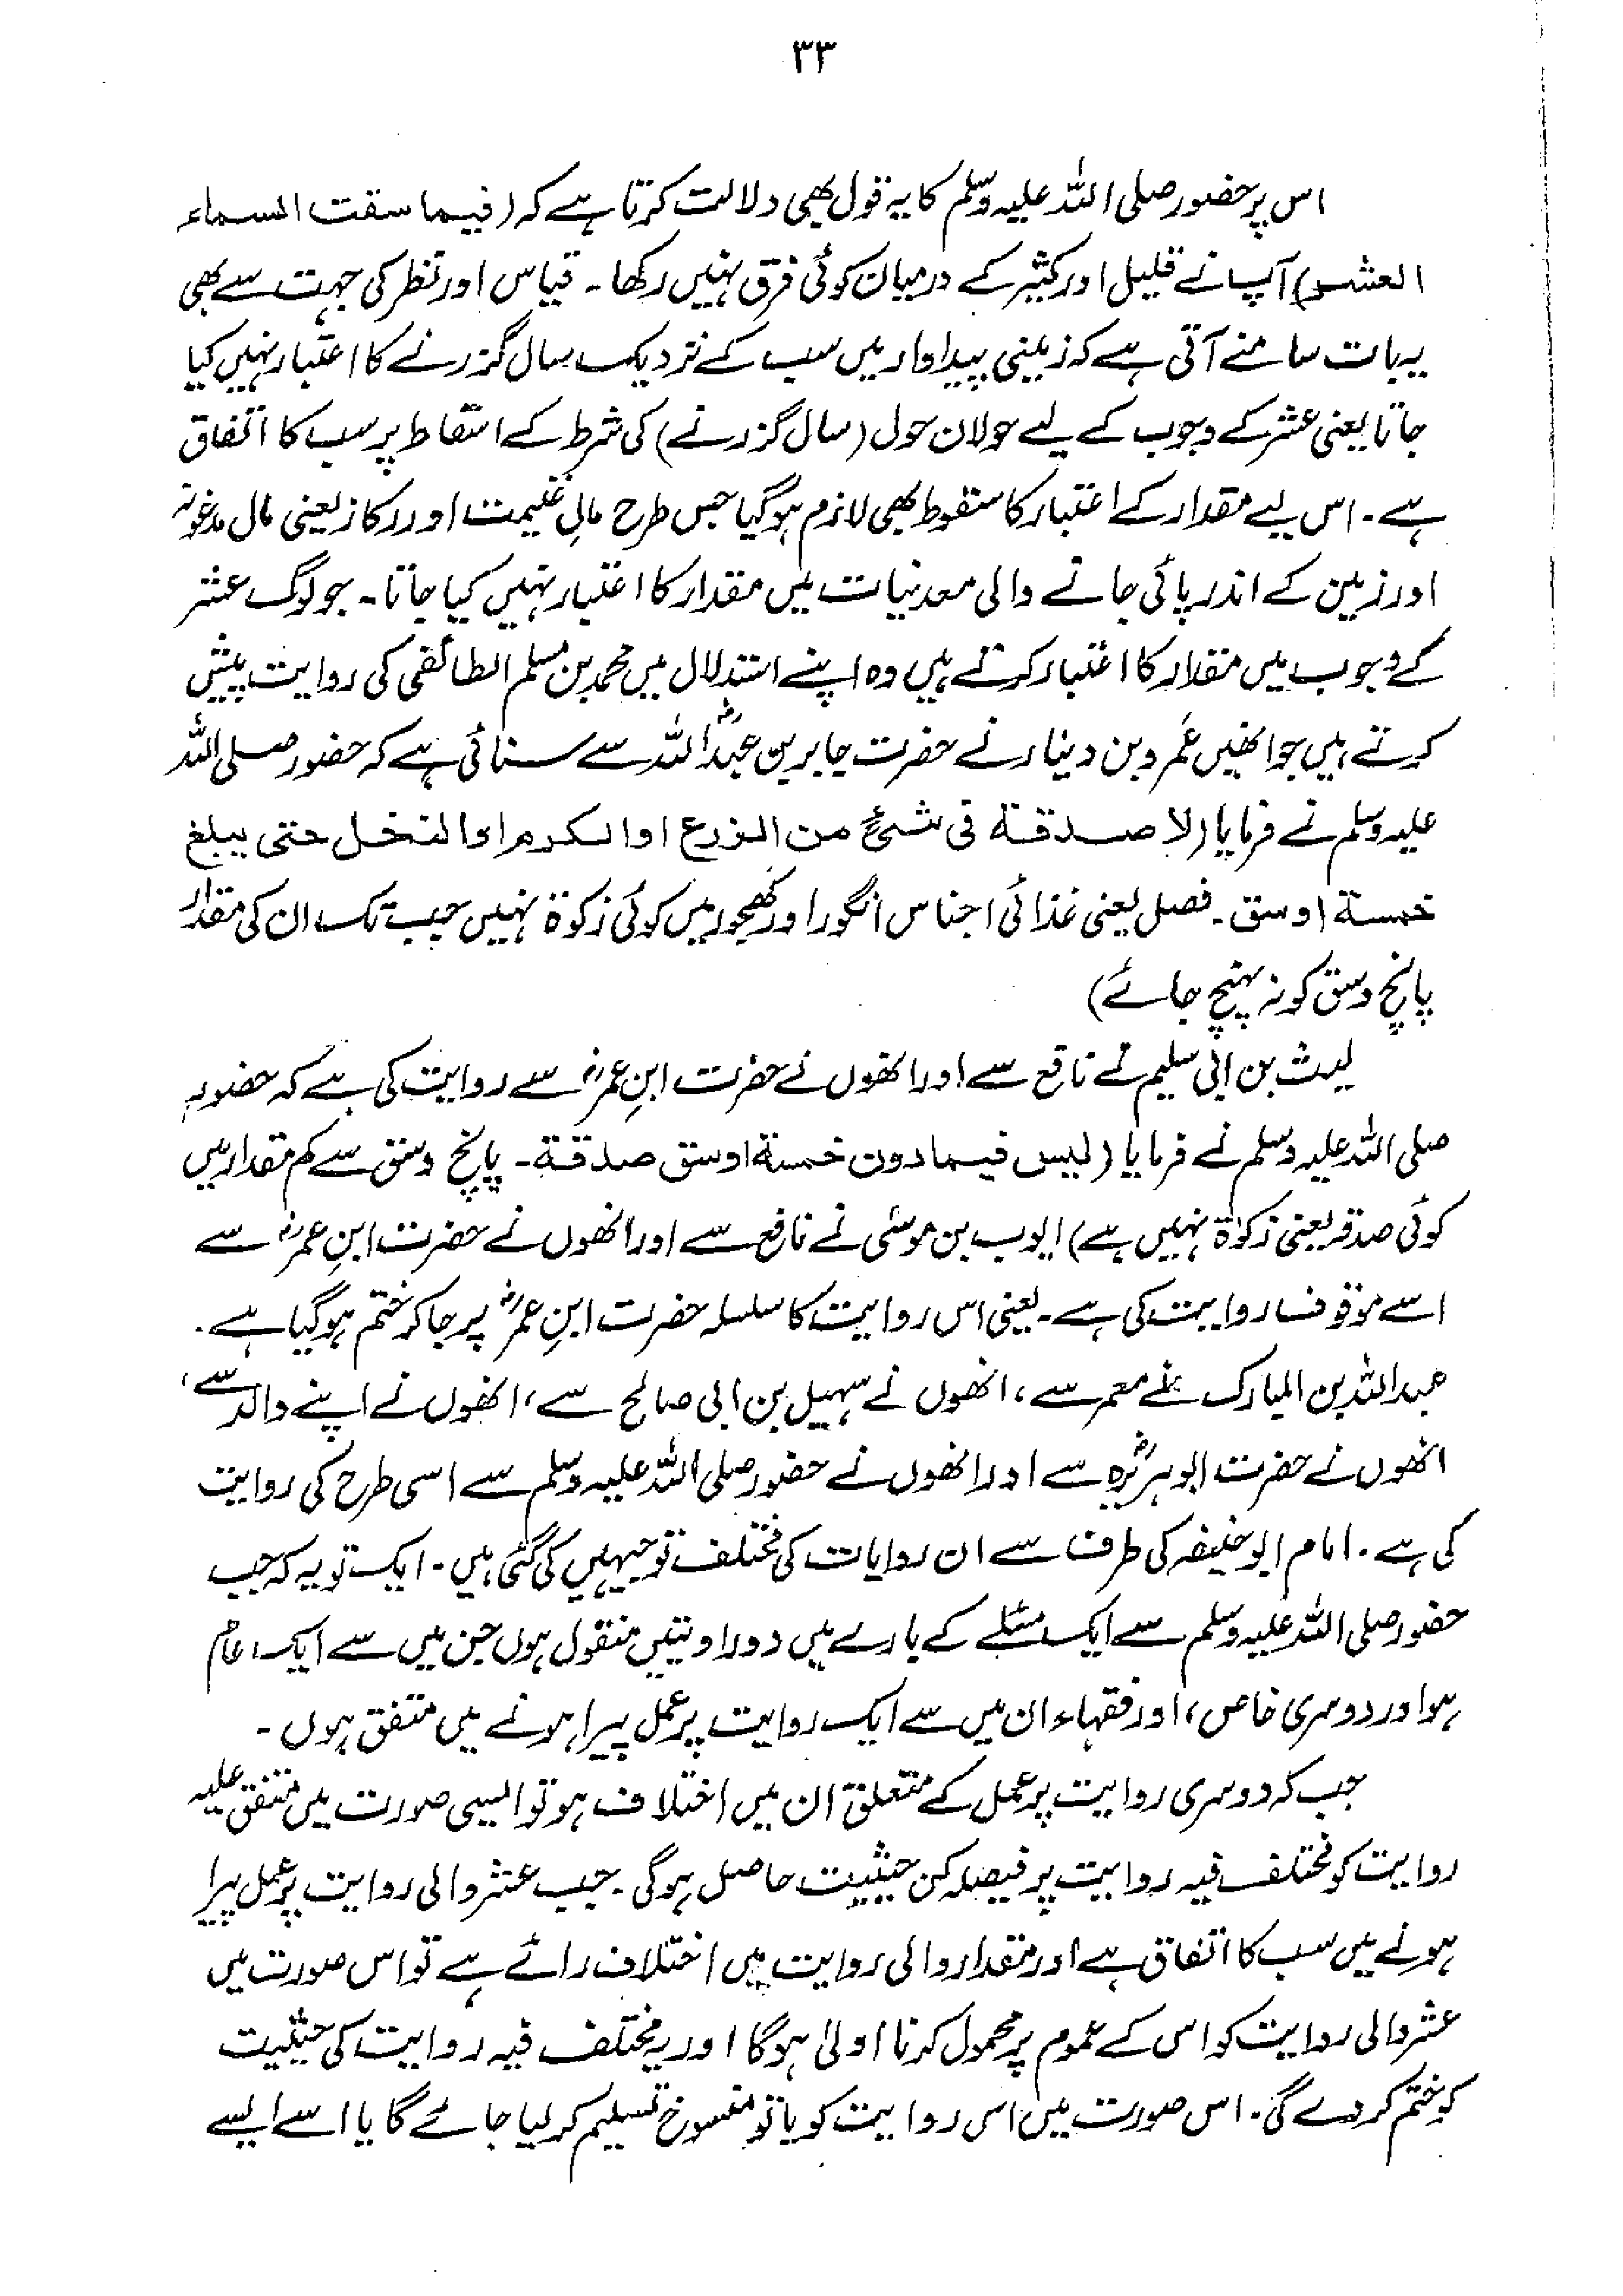 ۳۳
اس پر حضور صلی اللہ علیہ وسلم کا یہ قول بھی دلالت کرتا ہے کہ (فیما سقت السماء
العشر) آپ نے قلیل اور کثیر کے درمیان کوئی فرق نہیں رکھا۔ قیاس اور نظر کی جہت سے بھی
یہ بات سامنے آتی ہے کہ زمینی پیداوار میں سب کے نزدیک سال گزرنے کا اعتبار نہیں کیا
جاتا یعنی عشر کے وجوب کے لیے حولان حول (سال گزرنے) کی شرط کے اسقاط پر سب کا اتفاق
ہے۔ اس لیے مقدار کے اعتبار کا سقوط بھی لازم ہو گیا جس طرح مالِ غنیمت اور رکاز یعنی مال مدفونہ
اور زمین کے اندر پائی جانے والی معدنیات میں مقدار کا اعتبار نہیں کیا جاتا۔ جو لوگ عشر
کے وجوب میں مقدار کا اعتبار کرتے ہیں وہ اپنے استدلال میں محمد بن مسلم الطائفی کی روایت پیش
کرتے ہیں جو انھیں عمرو بن دینار نے حضرت جابر بن عبداللہؓ سے سنائی ہے کہ حضور صلی اللہ
علیہ وسلم نے فرمایا (لا صدقة فی شیٔ من الزرع او الکرم او النخل حتی یبلغ
خمسة اوسق۔ فصل یعنی غذائی اجناس انگور اور کھجور میں کوئی زکوٰۃ نہیں جب تک ان کی مقدار
پانچ وسق کو نہ پہنچ جائے)
لیث بن ابی سلیم نے نافع سے اور انھوں نے حضرت ابنِ عمرؓ سے روایت کی ہے کہ حضور
صلی اللہ علیہ وسلم نے فرمایا (لیس فیما دون خمسة اوسق صدقة۔ پانچ وسق سے کم مقدار میں
کوئی صدقہ یعنی زکوٰۃ نہیں ہے) ایوب بن موسٰی نے نافع سے اور انھوں نے حضرت ابنِ عمرؓ سے
اسے موقوفاً روایت کی ہے۔ یعنی اس روایت کا سلسلہ حضرت ابنِ عمرؓ پر جا کر ختم ہو گیا ہے۔
عبداللہ بن المبارک نے معمر سے، انھوں نے سہیل بن ابی صالح سے، انھوں نے اپنے والد سے،
انھوں نے حضرت ابوہریرہؓ سے اور انھوں نے حضور صلی اللہ علیہ وسلم سے اسی طرح کی روایت
کی ہے۔ امام ابو حنیفہ کی طرف سے ان روایات کی مختلف توجیہیں کی گئی ہیں۔ ایک تو یہ کہ جب
حضور صلی اللہ علیہ وسلم سے ایک مسئلے کے بارے میں دو روایتیں منقول ہوں جن میں سے ایک عام
ہو اور دوسری خاص، اور فقہاء ان میں سے ایک روایت پر عمل پیرا ہونے میں متفق ہوں۔
جب کہ دوسری روایت پر عمل کے متعلق ان میں اختلاف ہو تو ایسی صورت میں متفق علیہ
روایت کو مختلف فیہ روایت پر فیصلہ کن حیثیت حاصل ہو گی۔ جب عشر والی روایت پر عمل پیرا
ہونے میں سب کا اتفاق ہے اور مقدار والی روایت میں اختلاف رائے ہے تو اس صورت میں
عشر والی روایت کو اس کے عموم پر محمول کرنا اولیٰ ہو گا اور یہ مختلف فیہ روایت کی حیثیت
کو ختم کر دے گی۔ اس صورت میں اس روایت کو یا تو منسوخ تسلیم کر لیا جائے گا یا اسے ایسے